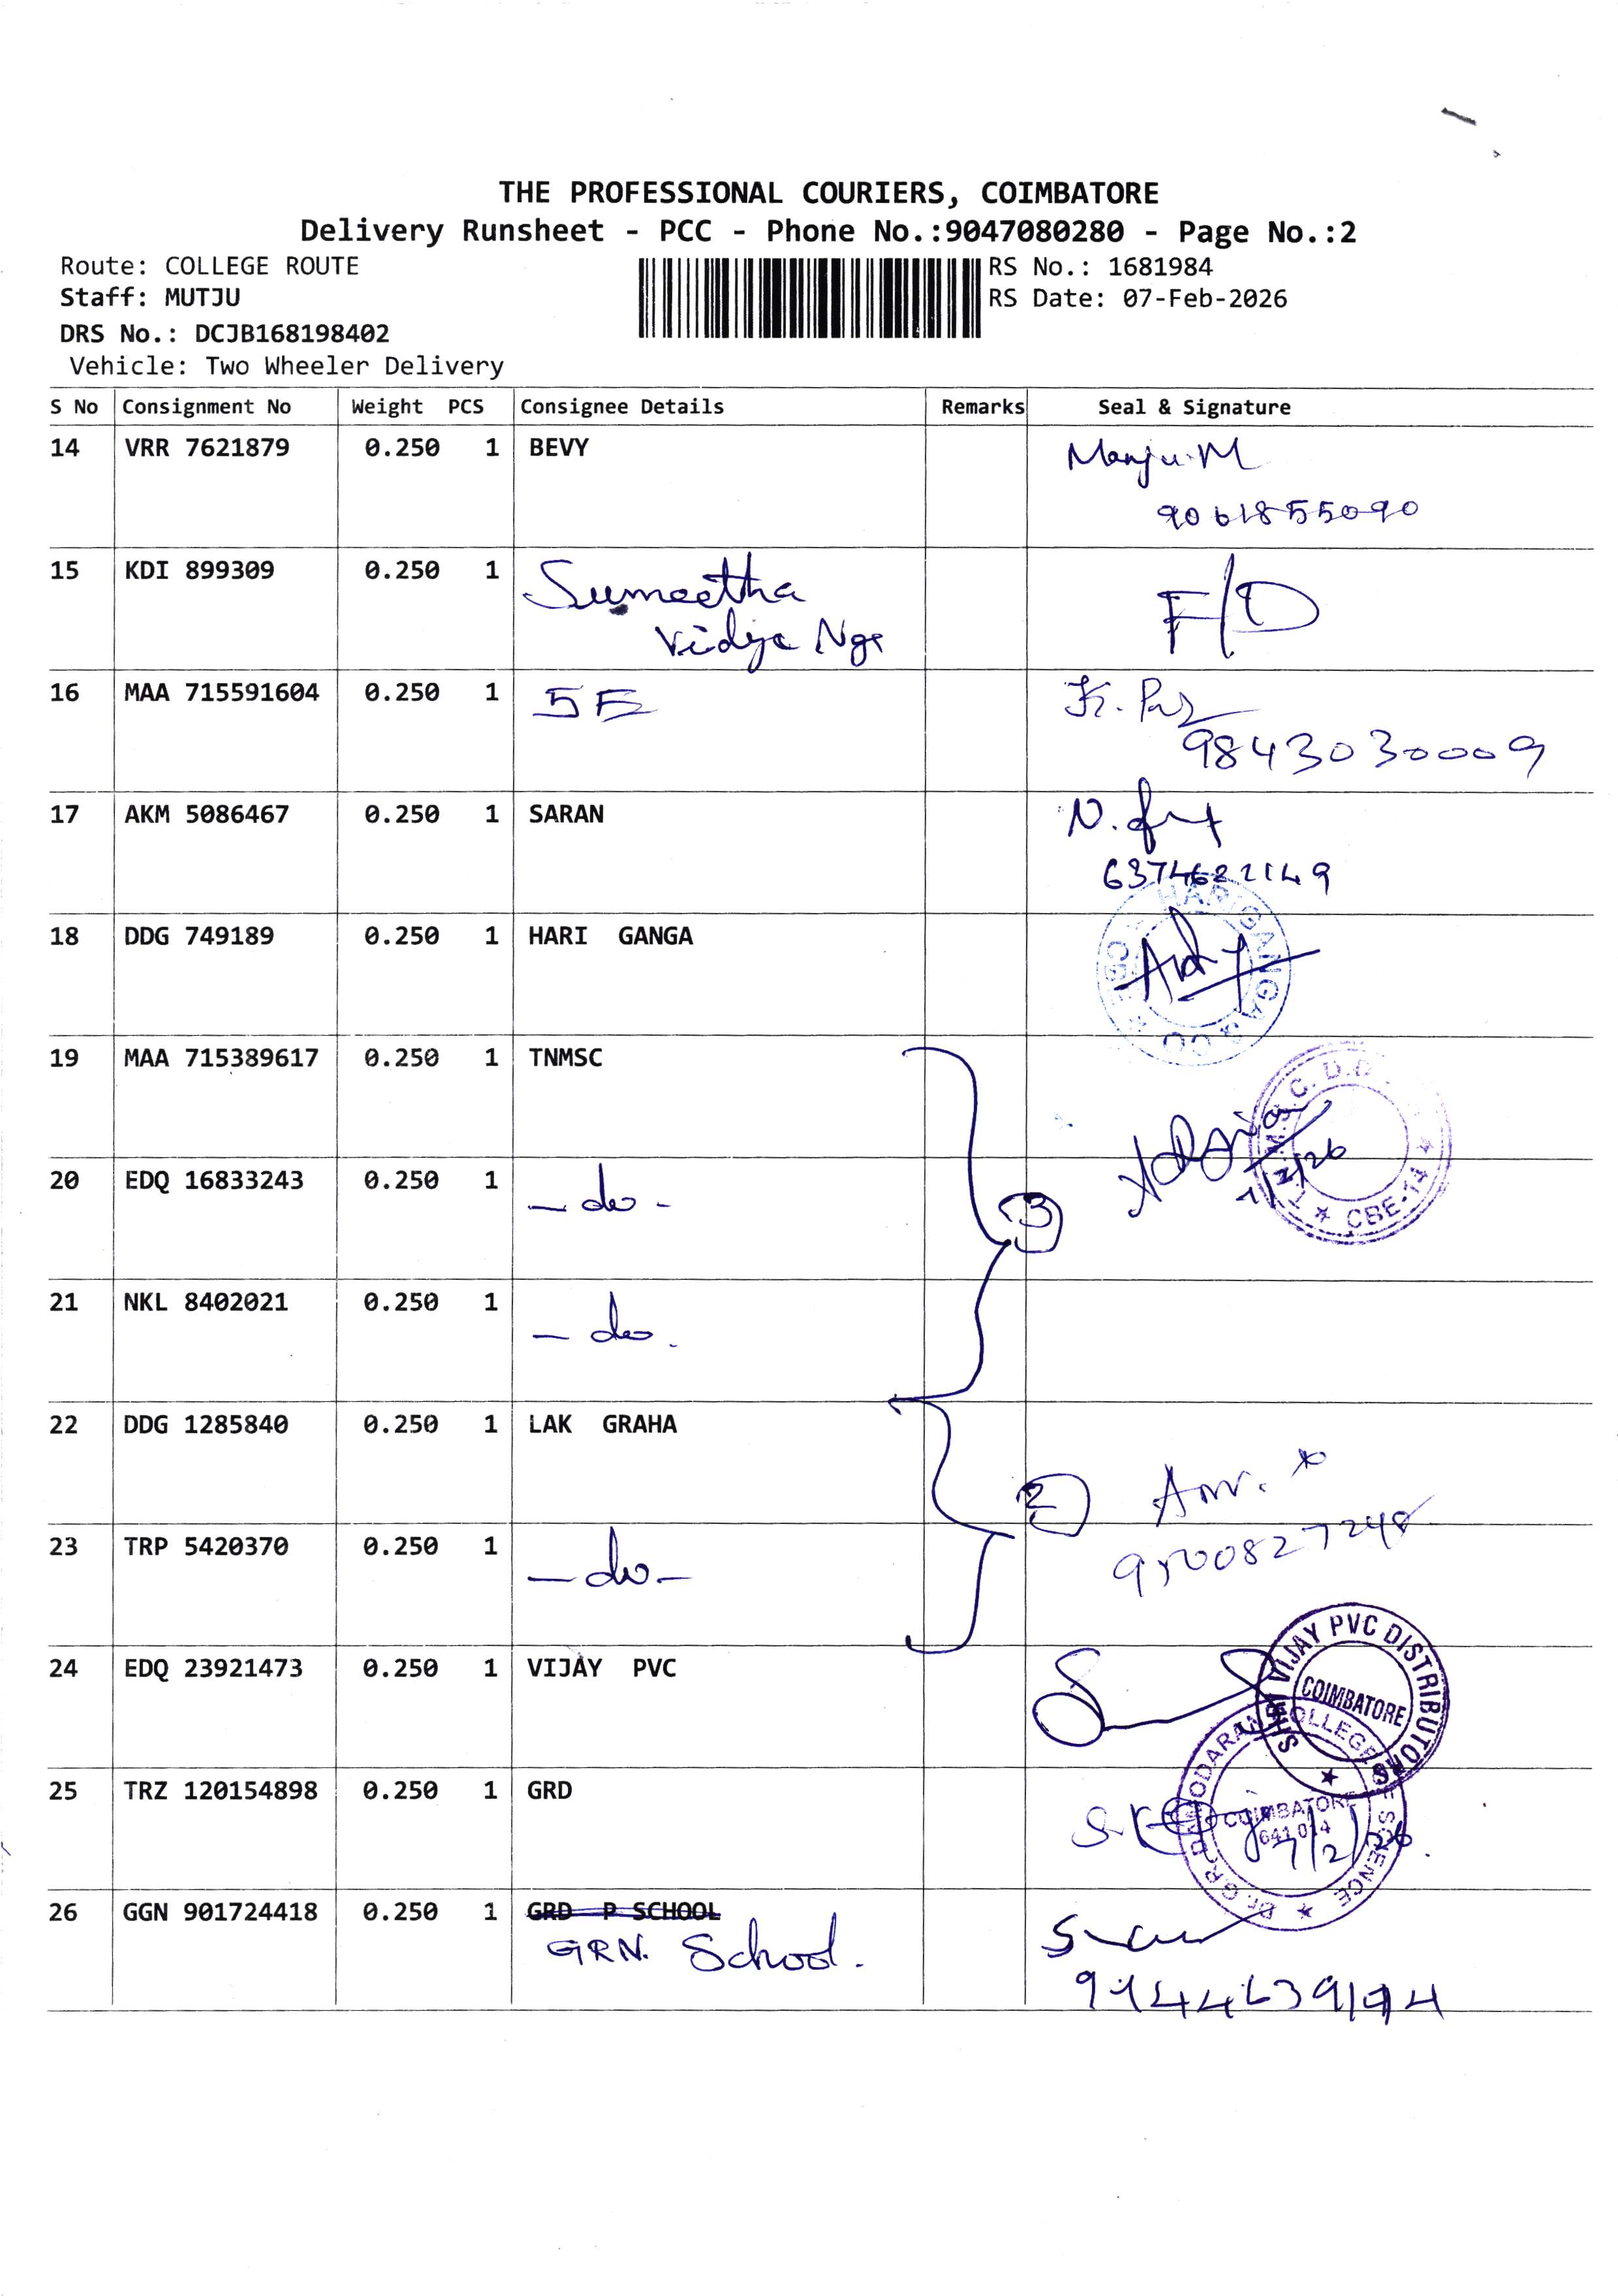 THE PROFESSIONAL COURIERS, COIMBATORE
Delivery Runsheet - PCC - Phone No.:9047080280 - Page No.:2
Route: COLLEGE ROUTE
RS No.: 1681984
Staff: MUTJU
RS Date: 07-Feb-2026
DRS No.: DCJB168198402
Vehicle: Two Wheeler Delivery
S No Consignment No Weight PCS Consignee Details Remarks Seal & Signature
14 VRR 7621879 0.250 1 BEVY Manju.M
9061855090
15 KDI 899309 0.250 1 Sumeetha F/D
Vidya Ngr
16 MAA 715591604 0.250 1 5E
9843030009
17 AKM 5086467 0.250 1 SARAN
18 DDG 749189 0.250 1 HARI GANGA
HARI GANGA & CO ★ CBE ★
19 MAA 715389617 0.250 1 TNMSC
7/2/26
★ CBE-14 ★
20 EDQ 16833243 0.250 1 - do - 3
21 NKL 8402021 0.250 1 - do.
22 DDG 1285840 0.250 1 LAK GRAHA 2
23 TRP 5420370 0.250 1 - do -
24 EDQ 23921473 0.250 1 VIJAY PVC
SHRI VIJAY PVC DISTRIBUTORS ★
COIMBATORE
25 TRZ 120154898 0.250 1 GRD
Dr. G.R. DAMODARAN COLLEGE OF SCIENCE ★
COIMBATORE
641 014
7/2/26
26 GGN 901724418 0.250 1 GRD P SCHOOL
GRN. School.